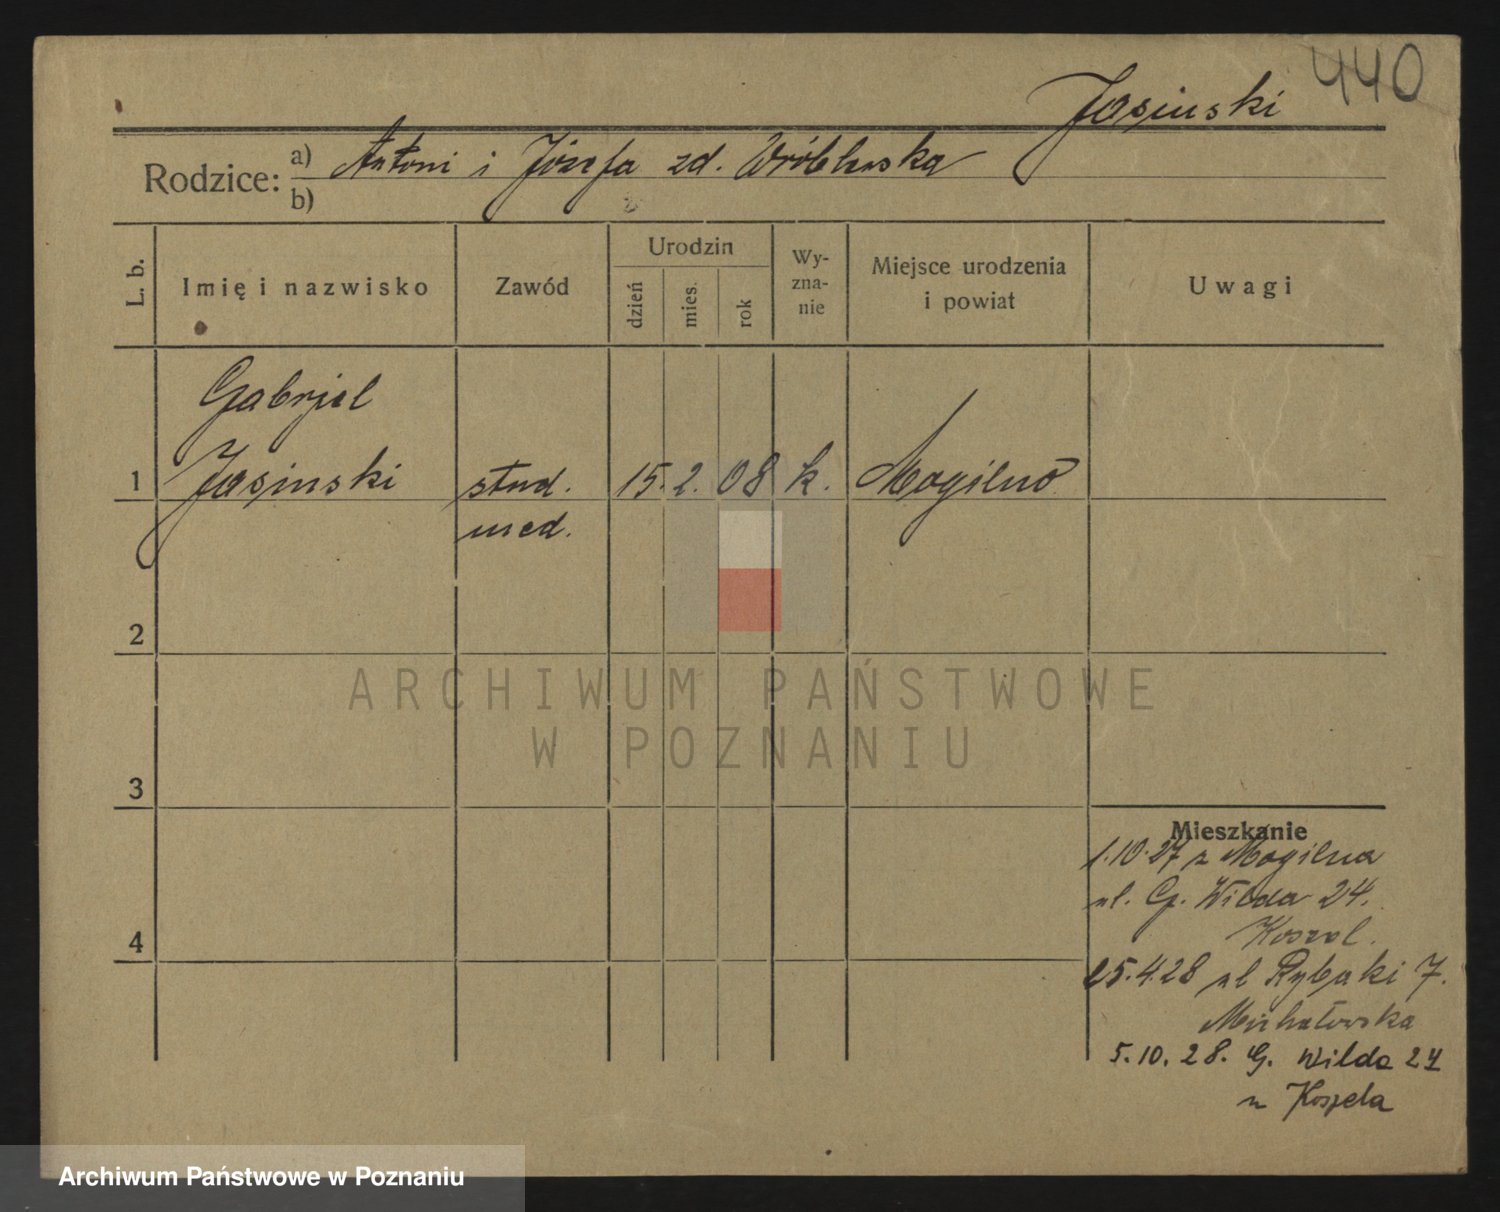 440
Jasinski
Rodzice: a) Antoni i Józefa zd. Wróblewska
b)
L. b.
Imię i nazwisko
Zawód
Urodzin
dzień
mies.
rok
Wy-
zna-
nie
Miejsce urodzenia
i powiat
Uwagi
Gabrjel
1 Jasinski stud. 15. 2. 08 k. Mogilno
med.
2
3
4
Mieszkanie
1.10.27 z Mogilna
ul. G. Wilda 24.
Koszel.
25.4.28 ul Rybaki 7.
Michałowska
5.10.28. G. Wilda 24
u Koszela
ARCHIWUM PAŃSTWOWE
W POZNANIU
Archiwum Państwowe w Poznaniu